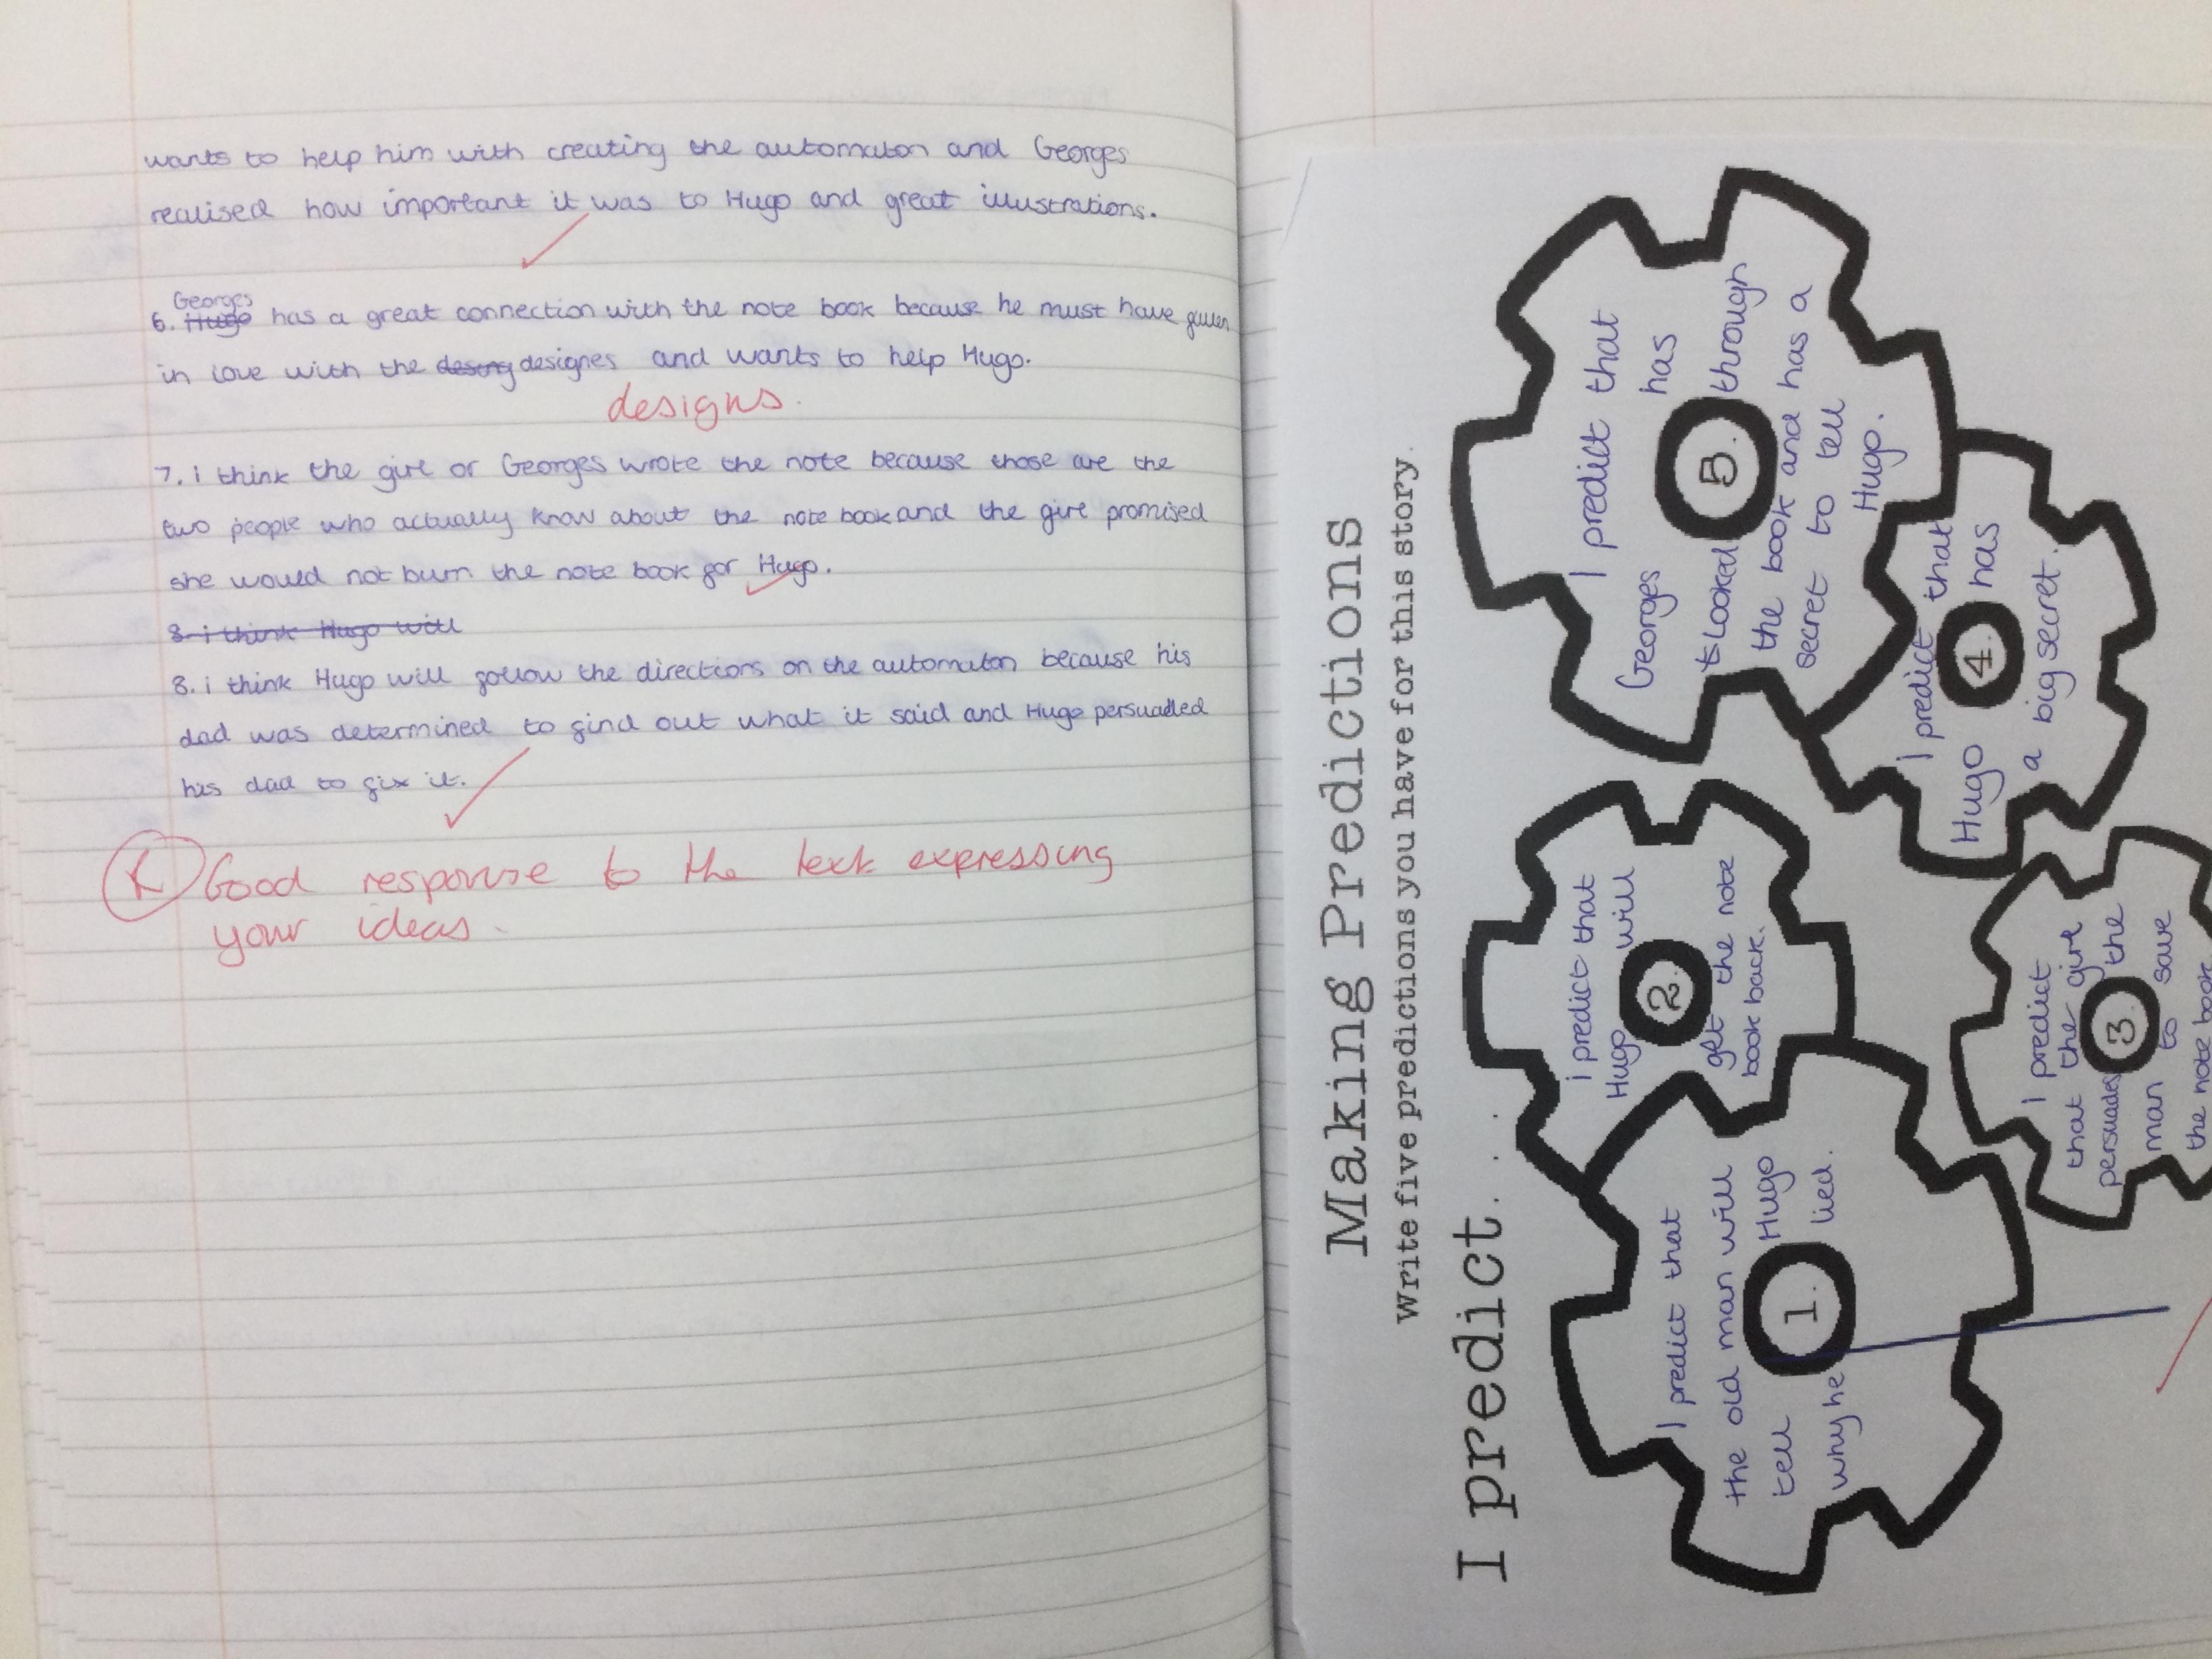 wants to help him with creating the automaton and Georges
realised how important it was to Hugo and great illustrations.
Georges
6. Hugo has a great connection with the note book because he must have fallen
in love with the desing designes and wants to help Hugo.
designs.
7. i think the girl or Georges wrote the note because those are the
two people who actually know about the note book and the girl promised
she would not burn the note book for Hugo.
8. i think Hugo will
8. i think Hugo will follow the directions on the automaton because his
dad was determined to find out what it said and Hugo persuaded
his dad to fix it.
Good response to the text expressing
your ideas.
Making Predictions
Write five predictions you have for this story.
I predict. . .
I predict that
the old man will
tell Hugo
1.
why he lied.
i predict that
Hugo will
2.
get the note
book back.
I predict
that the girl
persuades the
3.
man to save
the note book
I predict that
Hugo has
4.
a big secret.
I predict that
Georges has
looked through
5.
the book and has a
secret to tell
Hugo.